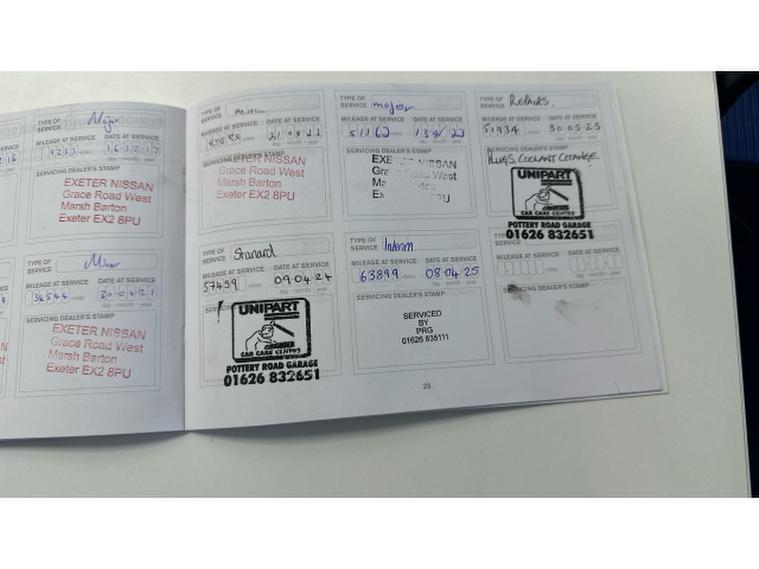 TYPE OF SERVICE Major
MILEAGE AT SERVICE DATE AT SERVICE
9253 miles 16 12 17
day - month - year
SERVICING DEALER'S STAMP
EXETER NISSAN
Grace Road West
Marsh Barton
Exeter EX2 8PU
TYPE OF SERVICE Minor
MILEAGE AT SERVICE DATE AT SERVICE
34544 miles 30 04 21
day - month - year
SERVICING DEALER'S STAMP
EXETER NISSAN
Grace Road West
Marsh Barton
Exeter EX2 8PU
TYPE OF SERVICE
MILEAGE AT SERVICE DATE AT SERVICE
miles
day - month - year
SERVICING DEALER'S STAMP
EXETER NISSAN
Grace Road West
Marsh Barton
Exeter EX2 8PU
TYPE OF SERVICE major
MILEAGE AT SERVICE DATE AT SERVICE
51162 miles
day - month - year
SERVICING DEALER'S STAMP
NISSAN
Road West
TYPE OF SERVICE REPAIRS.
MILEAGE AT SERVICE DATE AT SERVICE
51934 miles 30 05 23
day - month - year
PLUGS, COOLANT CHANGE.
UNIPART
CAR CARE CENTRE
POTTERY ROAD GARAGE
01626 832651
TYPE OF SERVICE Stanard
MILEAGE AT SERVICE DATE AT SERVICE
57439 miles 09 04 24
day - month - year
UNIPART
CAR CARE CENTRE
POTTERY ROAD GARAGE
01626 832651
TYPE OF SERVICE Interim
MILEAGE AT SERVICE DATE AT SERVICE
63899 miles 08 04 25
day - month - year
SERVICING DEALER'S STAMP
SERVICED
BY
PRG
01626 835111
SERVICE
MILEAGE AT SERVICE DATE AT SERVICE
miles
day - month - year
SERVICING DEALER'S STAMP
29